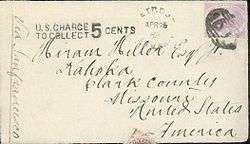 U.S. CHARGE
TO COLLECT 5 CENTS
APR 26
Via Sanfrancisco
Hiram Miller Esqr
Kahoka
Clark County
Missouri
United States
America